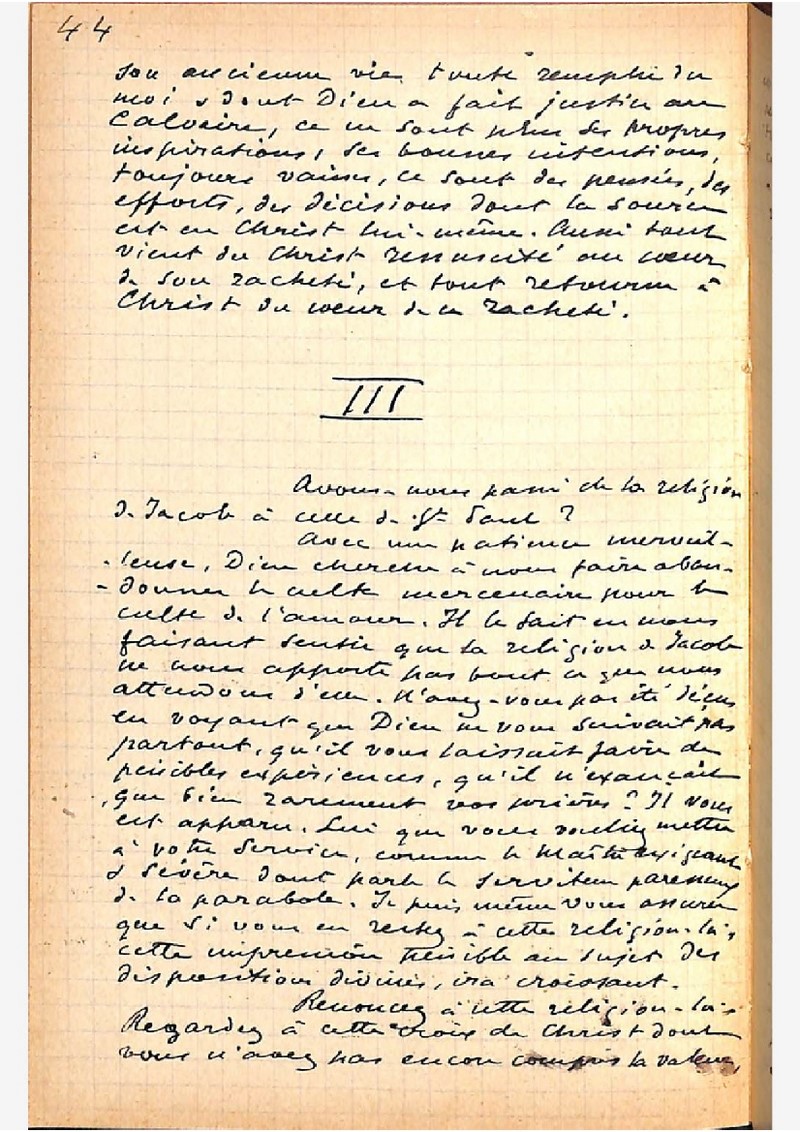 44
son ancienne vie toute remplie du
moi & dont Dieu a fait justice au
Calvaire, ce ne sont plus ses propres
inspirations, ses bonnes intentions,
toujours vaines, ce sont des pensées, des
efforts, des décisions dont la source
est en Christ lui-même. Aussi tout
vient du Christ ressuscité au cœur
de son racheté, et tout retourne à
Christ du cœur de ce racheté.
III
Avons-nous passé de la religion
de Jacob à celle de St Paul ?
Avec une patience merveil-
-leuse, Dieu cherche à nous faire aban-
-donner le culte mercenaire pour le
culte de l'amour. Il le fait en nous
faisant sentir que la religion de Jacob
ne nous apporte pas tout ce que nous
attendons d'elle. N'avez-vous pas été déçus
en voyant que Dieu ne vous suivait pas
partout, qu'il vous laissait faire de
pénibles expériences, qu'il n'exauçait
que bien rarement vos prières ? Il vous
est apparu, Lui que vous vouliez mettre
à votre service, comme le Maître exigeant
& sévère dont parle le serviteur paresseux
de la parabole. Je puis même vous assurer
que si vous en restez à cette religion-là,
cette impression pénible au sujet des
dispositions divines, ira croissant.
Renoncez à cette religion-là.
Regardez à cette croix de Christ dont
vous n'avez pas encore compris la valeur,